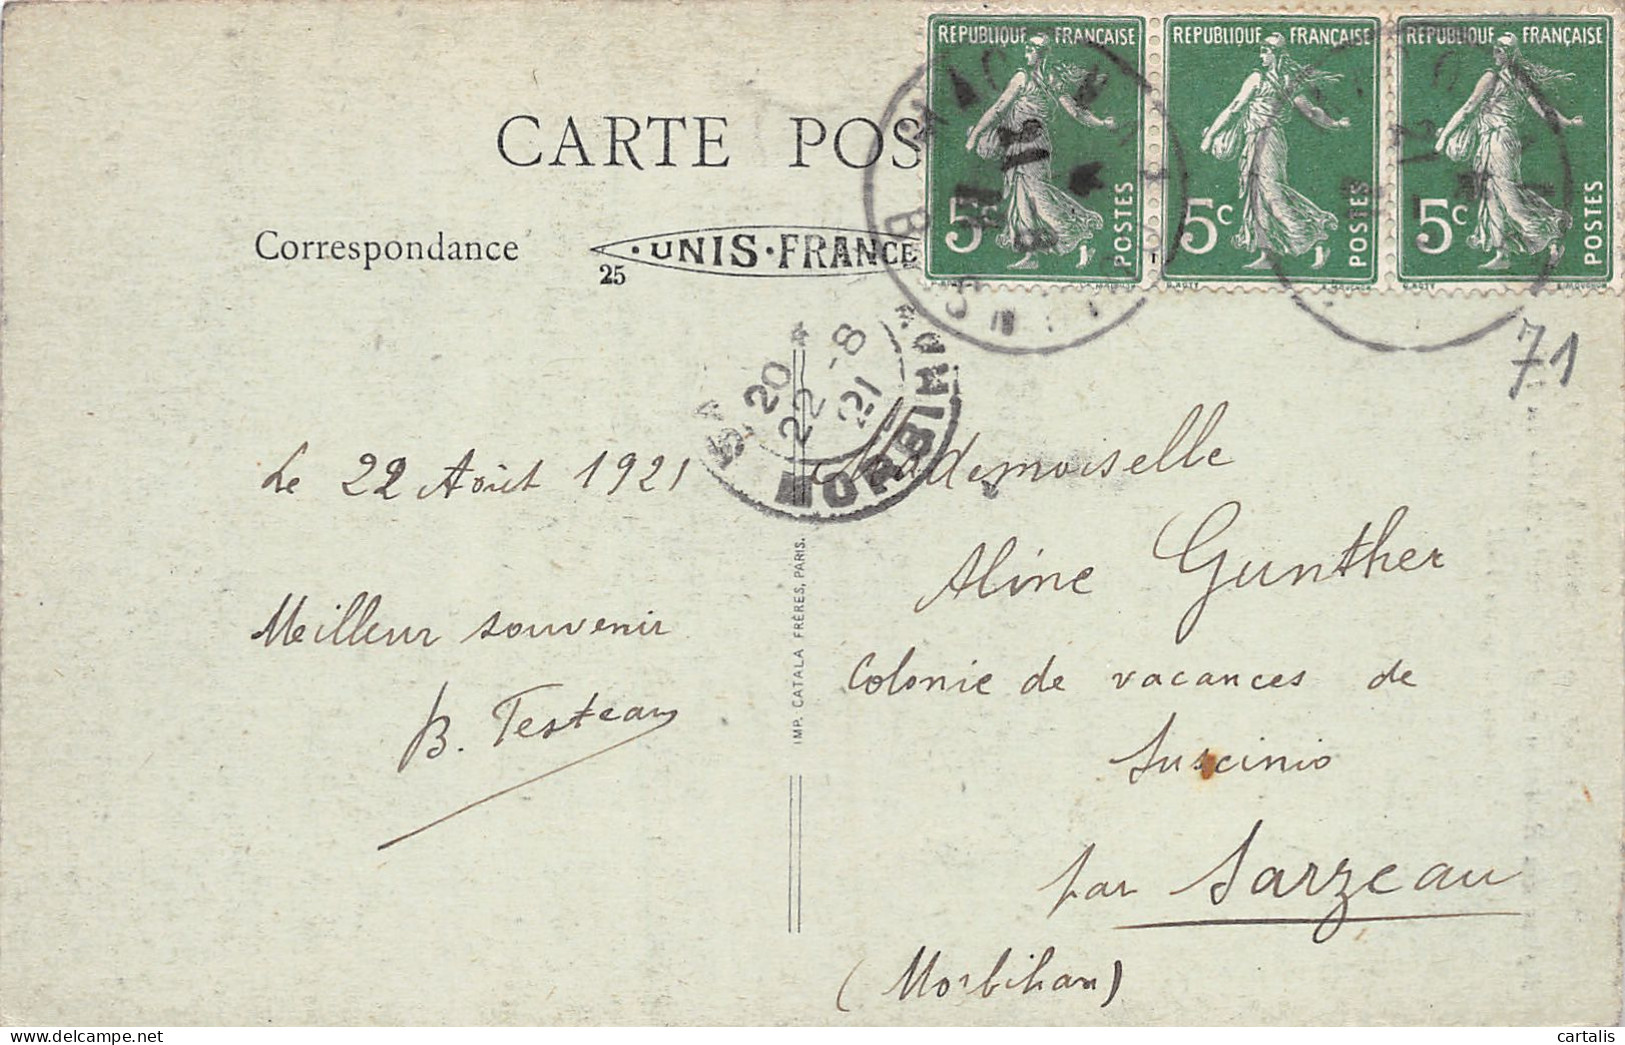 RÉPUBLIQUE FRANÇAISE
5c POSTES
RÉPUBLIQUE FRANÇAISE
5c POSTES
RÉPUBLIQUE FRANÇAISE
5c POSTES
CARTE POS
Correspondance
·UNIS·FRANCE
25
71
20
22 -8
21
MORBIHAN
Le 22 Août 1921
Meilleur souvenir
B. Testeau
IMP. CATALA FRÈRES, PARIS.
Mademoiselle
Aline Gunther
Colonie de vacances de
Suscinio
par Sarzeau
(Morbihan)
cartalis